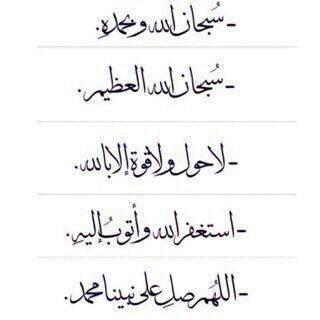 -سُبحان الله وبحمدهِ.
-سُبحان الله العظيم.
-لاحول ولاقوة إلا بالله.
-استغفر الله وأتوبُ إليهِ.
-اللهُم صلِ على نبينا محمد.